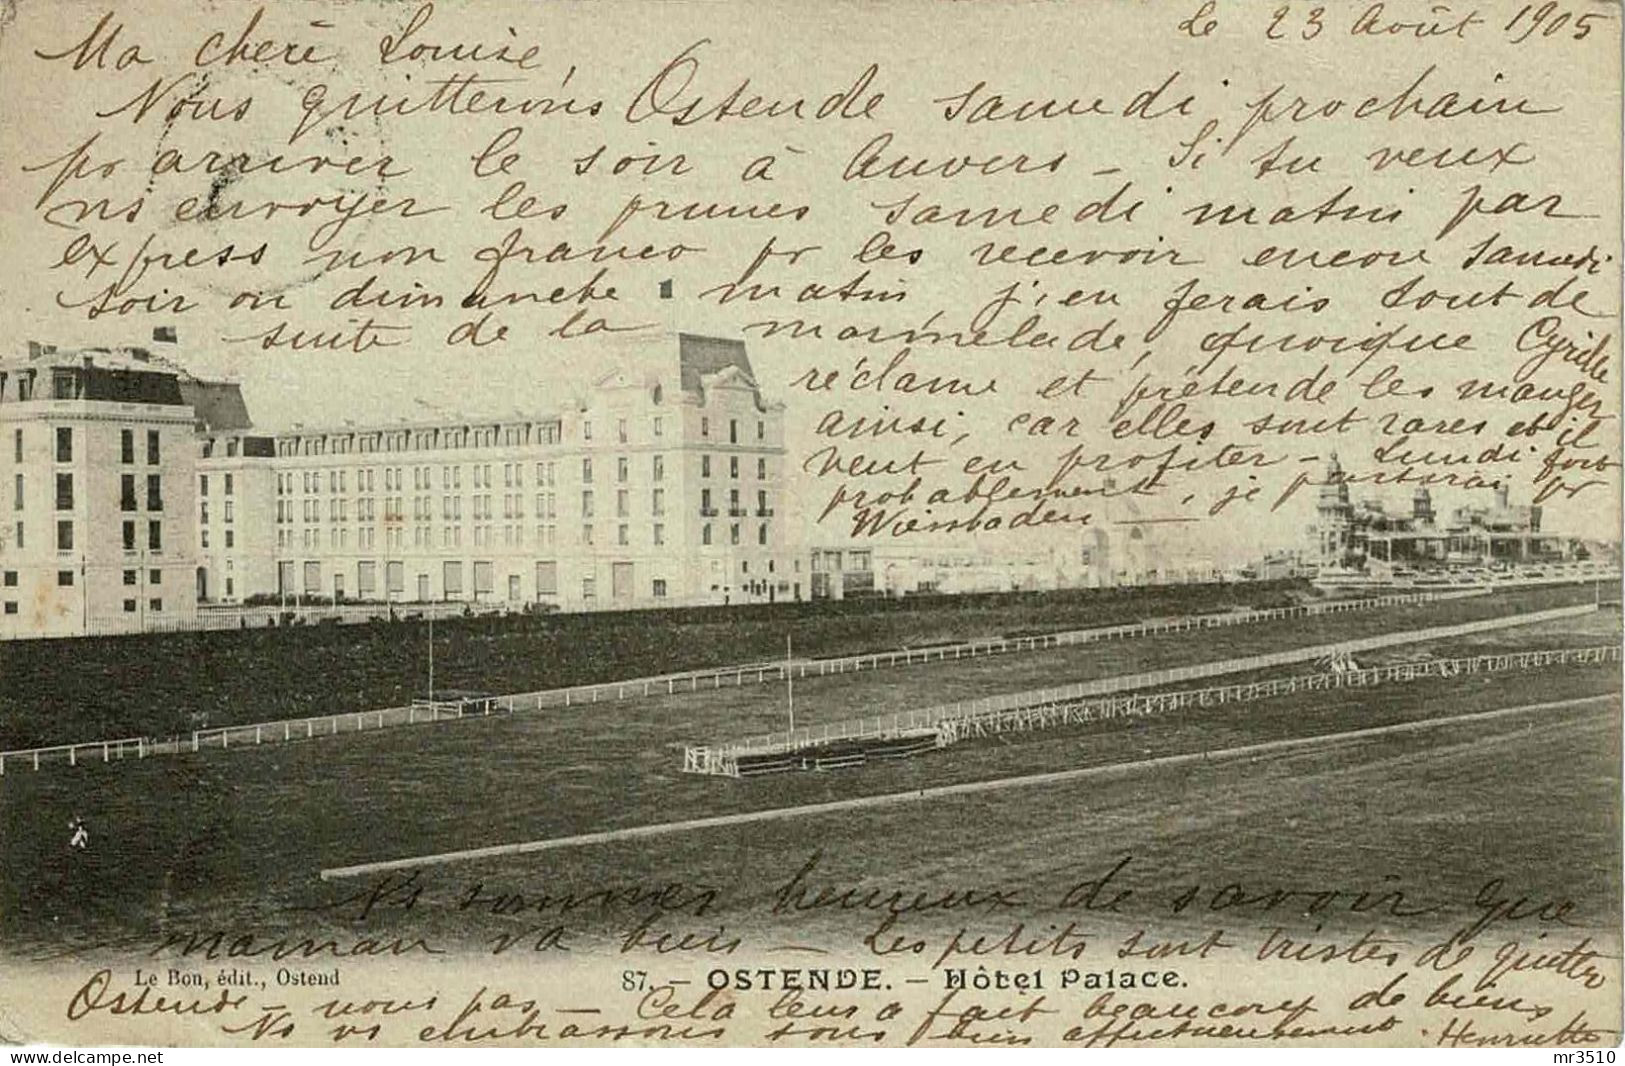 Le 23 Août 1905
Ma chère Louise,
Nous quitterons Ostende samedi prochain
pr arriver le soir à Anvers – Si tu veux
ns envoyer les prunes samedi matin par
express non franco pr les recevoir encore samedi
soir ou dimanche matin, j'en ferais tout de
suite de la marmelade, quoique Cyrille
réclame et prétende les manger
ainsi, car elles sont rares et il
veut en profiter – Lundi fort
probablement, je partirai pr
Wiesbaden —
Ns sommes heureux de savoir que
maman va bien – Les petits sont tristes de quitter
Le Bon, édit., Ostend
87. – OSTENDE. – Hôtel Palace.
Ostende – nous pas – Cela leur a fait beaucoup de bien
Ns vs embrassons tous bien affectueusement. Henriette
delcampe.net
mr3510